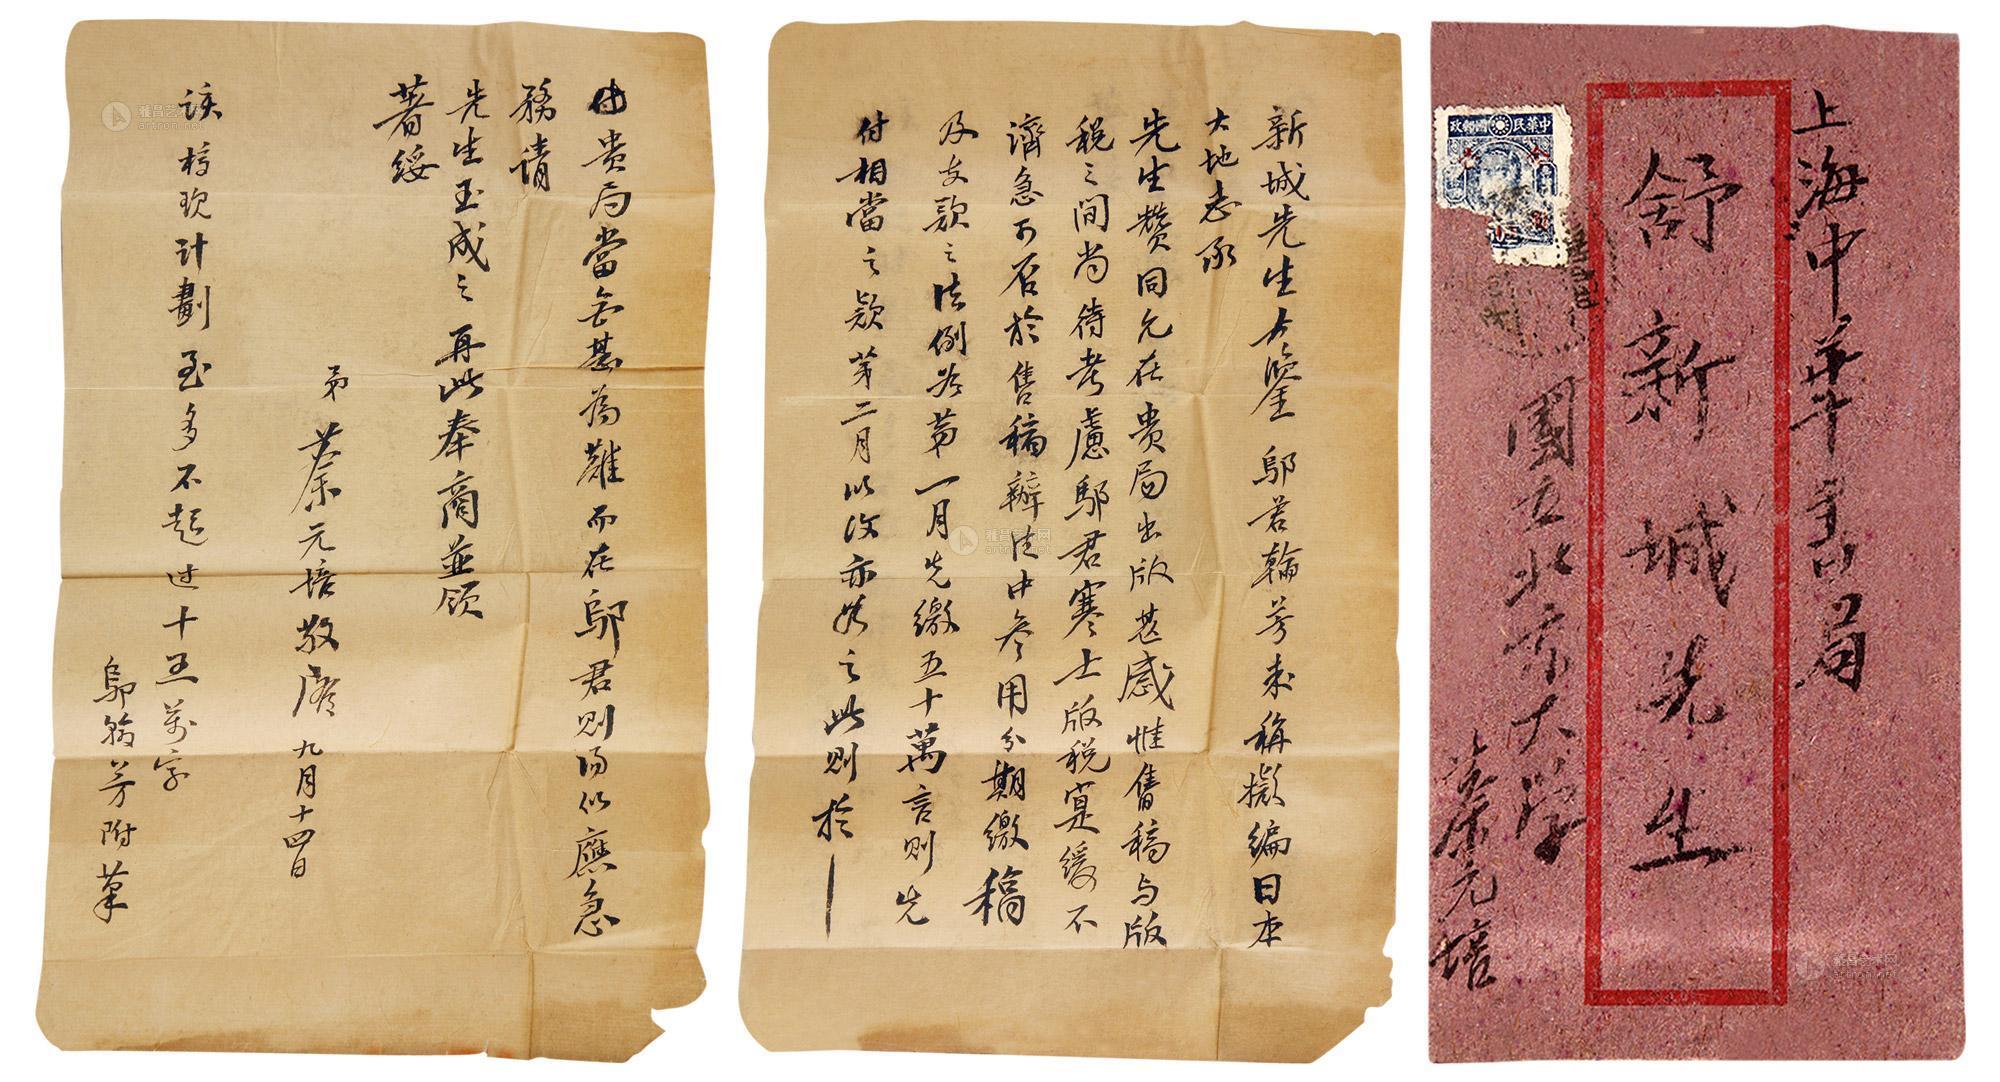 上海中華書局
舒新城先生
國立北京大學
蔡元培
中華民國郵政
新城先生大鑒 鄔君翰芳来稱擬編日本
大地志承
先生贊同允在貴局出版甚感惟售稿与版
税之间尚待考慮鄔君寒士版税寔缓不
濟急可否於售稿辦法中参用分期繳稿
及支款之法例如第一月先繳五十萬言则先
付相當之款第二月以後亦如之此则於
貴局當無甚為難而在鄔君则為似應急
務請
先生玉成之再此奉商並颂
著綏
弟蔡元培敬啟 九月十四日
该稿現計劃至多不起过十五萬字
鄔翰芳附筆
雅昌艺术网
artron.net
雅昌艺术网
artron.net
雅昌艺术网
artron.net